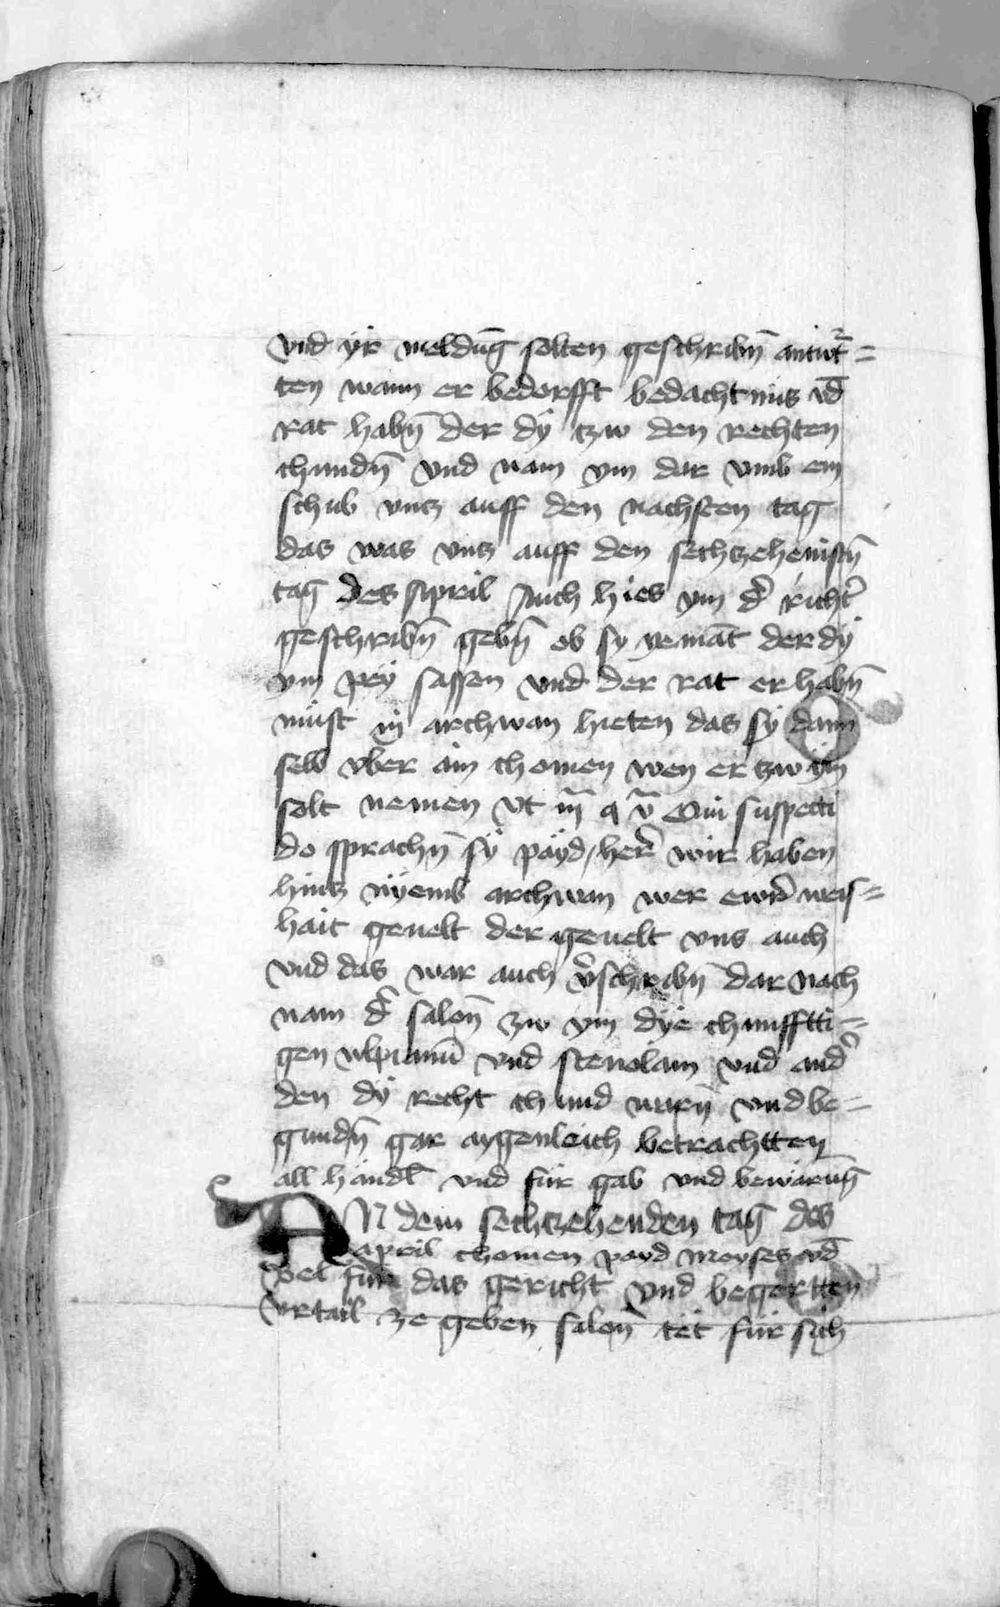 vnd yr meldūg solten geschribn̄ antw̄r=
ten wann er bedorfft bedachtnus vd̄
rat habn̄ der dy tzw den rechten
chundn̄ vnd nam ym dar vmb ein
schub vntz auff den nachsten tag
das was vntz auff den sechtzehenistn̄
tag des April Auch hies ym d̄ richt̄
geschribn̄ gebn̄ ob sy yemāt der dy
ym pey sassen vnd der rat er habn̄
müst in archwan hieten das sy dann
selb vber ain chomen wen er tzw ym
solt nemen vt q v̄ suspecti
do sprachn̄ sy payd / her̄ wir haben
hintz nyemb archwan wer ewr̄ weis=
hait geuelt der geuelt vns auch
vnd das war auch v̄schribn̄ dar nach
nam d̄ salon̄ zw ym dye chunfftti=
gen vlpianū vnd sceuolam vnd and̄
den dy recht chund warn̄ vnd be=
gundn̄ gar aygenleich betrachtten
all handl̄ vnd für gab vnd bewärūg
AN dem sechtzehenden tag des
april chomen payd moyses vd̄
bel für das gericht vnd begertten
vrtail ze geben salon̄ tet für sich